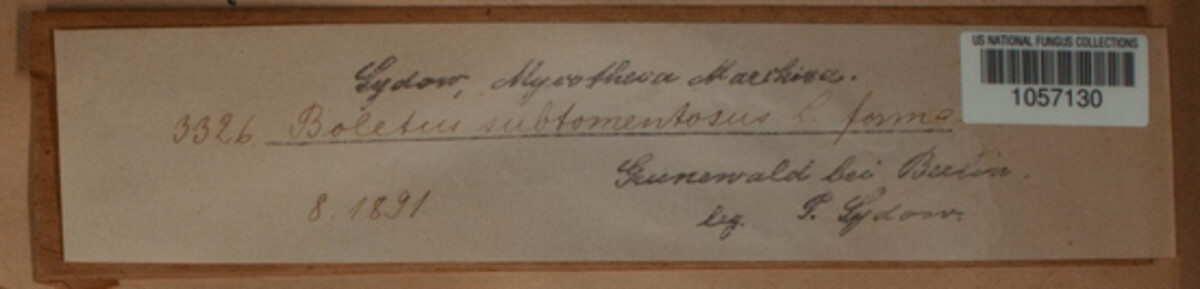 US NATIONAL FUNGUS COLLECTIONS
1057130
Sydow, Mycotheca Marchica.
3326. Boletus subtomentosus L. forma
Grunewald bei Berlin.
8. 1891.
leg. P. Sydow.